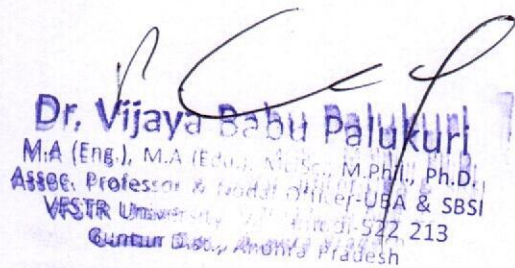 Dr. Vijaya Babu Palukuri
M.A (Eng.), M.A (Edu.), M.Phil., Ph.D.
Assoc. Professor & Nodal Officer-UBA & SBSI
VFSTR University 522 213
Guntur Dist., Andhra Pradesh